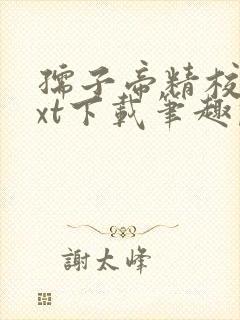 孺子帝精校
xt下載筆趣
謝太峰